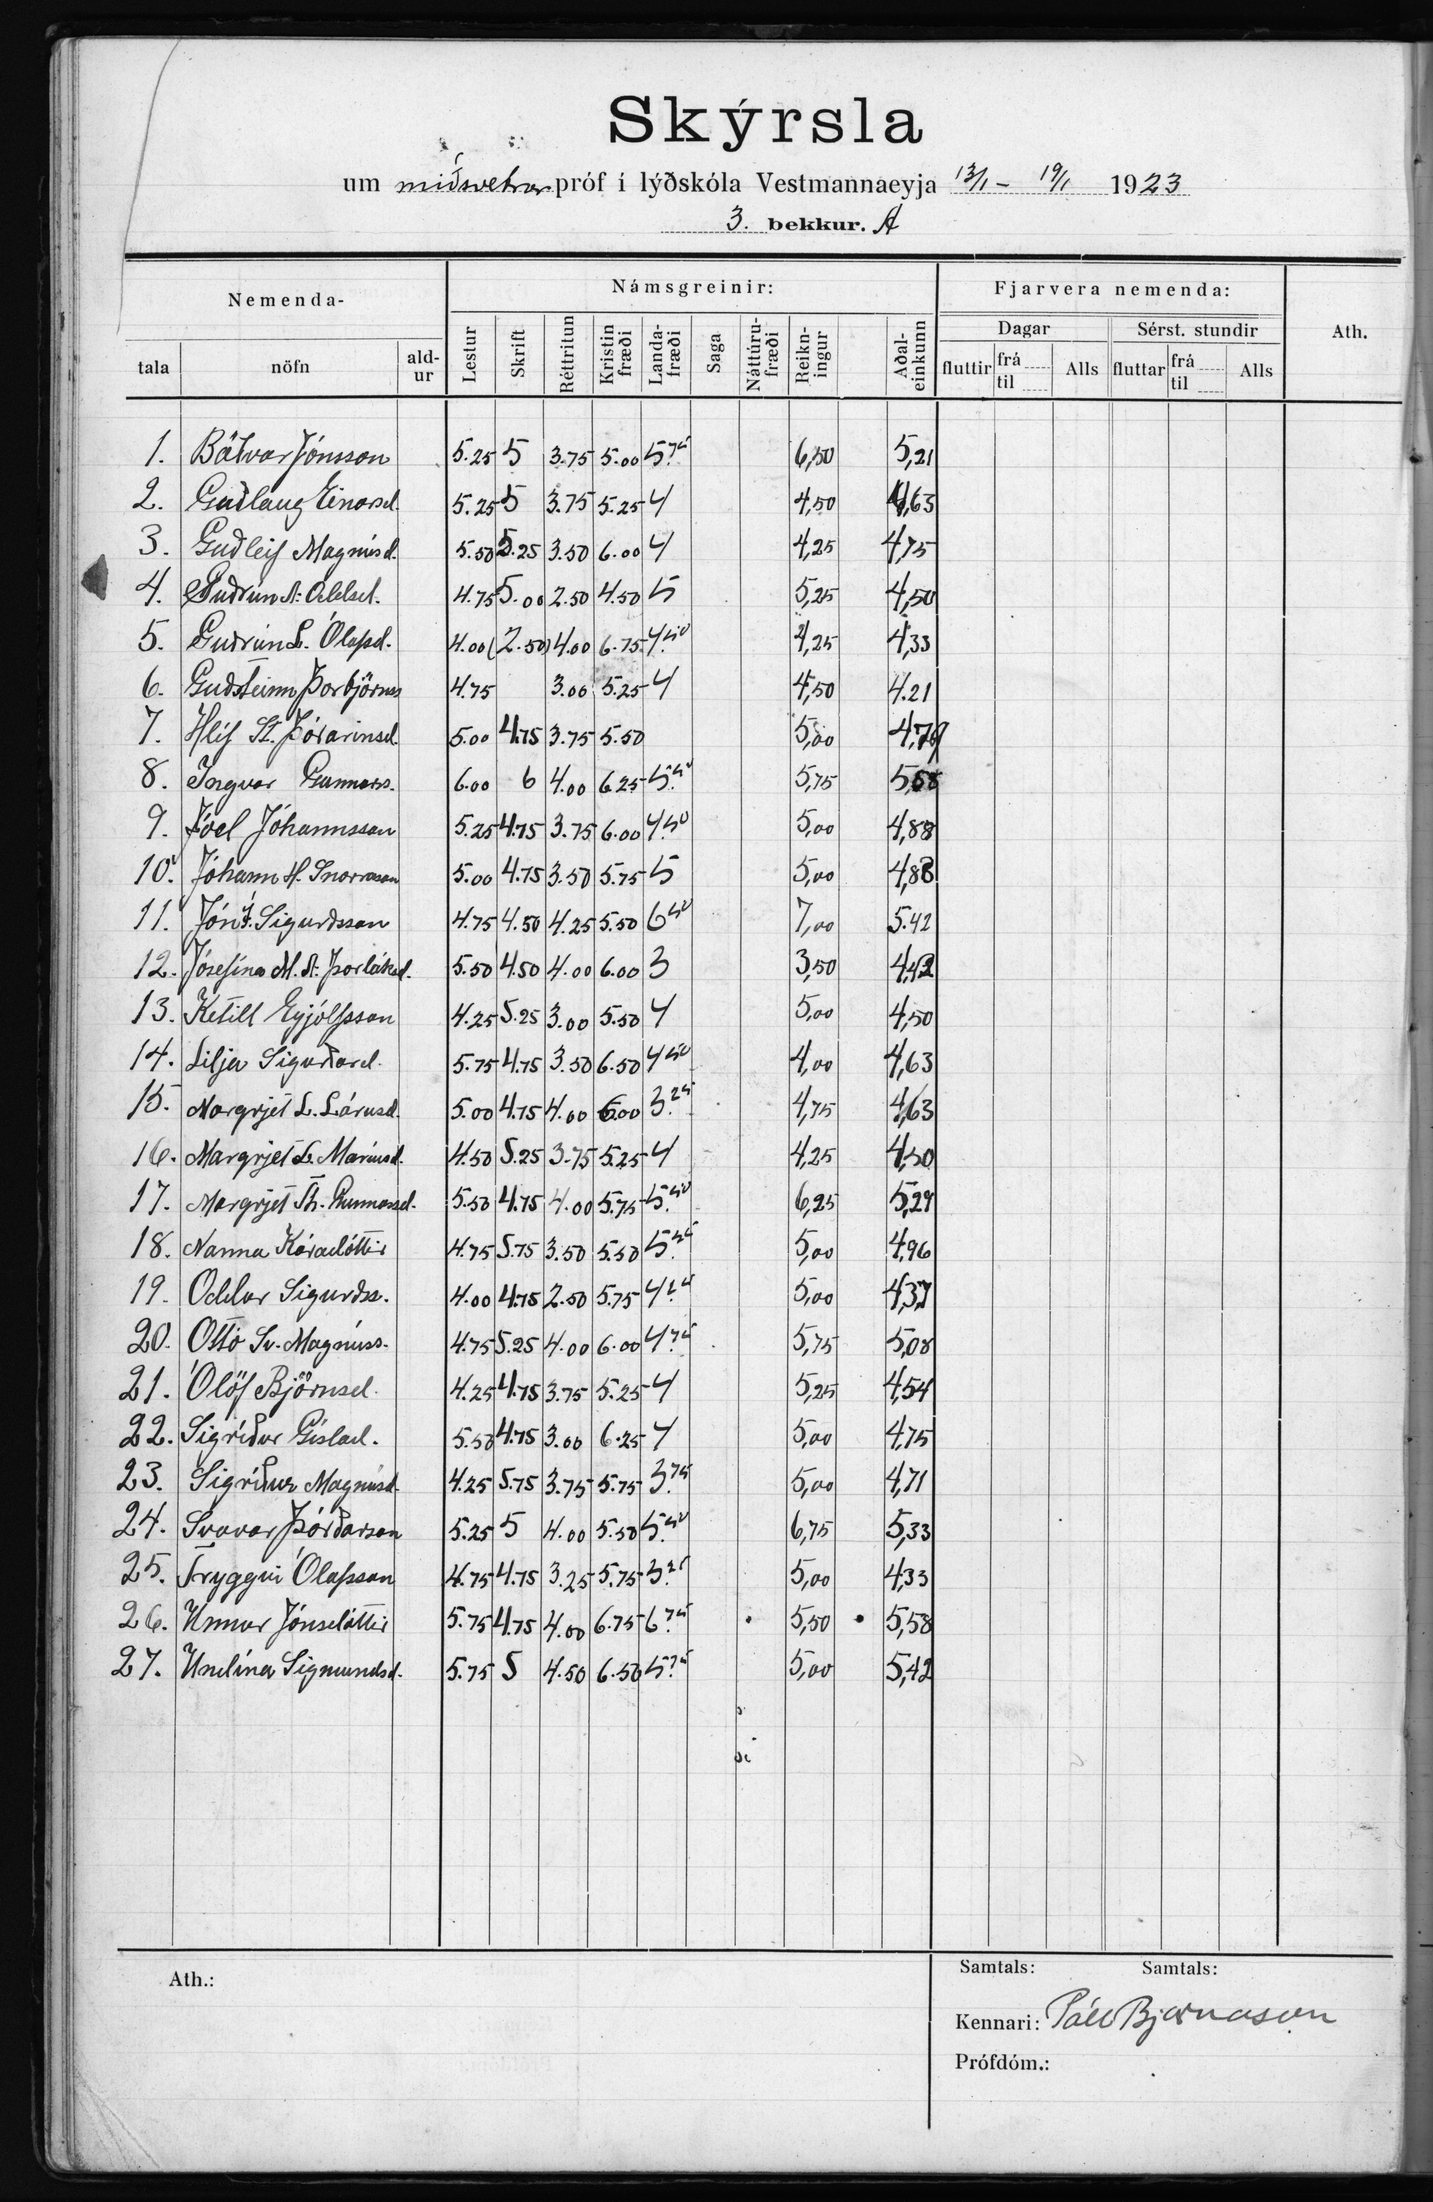 Skýrsla
um miðsvetrar próf í lýðskóla Vestmannaeyja 13/1 – 19/1 1923
3. bekkur. A
Nemenda-
Námsgreinir:
Fjarvera nemenda:
Ath.
tala nöfn ald-ur Lestur Skrift Réttritun Kristin fræði Landa-fræði Saga Náttúru-fræði Reikn-ingur Aðal-einkunn
Dagar Sérst. stundir
fluttir frá til Alls fluttar frá til Alls
1. Böðvar Jónsson 5.25 5 3.75 5.00 5.75 6,50 5,21
2. Guðlaug Einarsd. 5.25 5 3.75 5.25 4 4,50 4,63
3. Guðleif Magnúsd. 5.50 5.25 3.50 6.00 4 4,25 4,75
4. Guðrún A. Oddsd. 4.75 5.00 2.50 4.50 5 5,25 4,50
5. Guðrún L. Ólafsd. 4.00 (2.50) 4.00 6.75 4.50 4,25 4,33
6. Guðsteinn Þorbjörnss 4.75 3.00 5.25 4 4,50 4.21
7. Hlíf St. Þórarinsd. 5.00 4.75 3.75 5.50 5,00 4,79
8. Ingvar Gunnars. 6.00 6 4.00 6.25 5.50 5,75 5,58
9. Jóel Jóhannsson 5.25 4.75 3.75 6.00 4.50 5,00 4,88
10. Jóhann H. Snorrason 5.00 4.75 3.50 5.75 5 5,00 4,83
11. Jón Í. Sigurðsson 4.75 4.50 4.25 5.50 6 50 7,00 5.42
12. Jósefína M. A. Þorláksd. 5.50 4.50 4.00 6.00 3 3,50 4,42
13. Ketill Eyjólfsson 4.25 5.25 3.00 5.50 4 5,00 4,50
14. Lilja Sigurðard. 5.75 4.75 3.50 6.50 4 50 4,00 4,63
15. Margrjet L. Lárusd. 5.00 4.75 4.00 6.00 3.25 4,75 4,63
16. Margrjet L. Maríusd. 4.50 5.25 3.75 5.25 4 4,25 4,50
17. Margrjet Th. Gunnarsd. 5.50 4.75 4.00 5.75 5.50 6,25 5,29
18. Nanna Káradóttir 4.75 5.75 3.50 5.50 5.25 5,00 4,96
19. Oddur Sigurðss. 4.00 4.75 2.50 5.75 4.25 5,00 4,37
20. Ottó Sv. Magnúss. 4.75 5.25 4.00 6.00 4 75 5,75 5,08
21. Ólöf Björnsd. 4.25 4.75 3.75 5.25 4 5,25 4,54
22. Sigríður Gíslad. 5.50 4.75 3.00 6.25 4 5,00 4,75
23. Sigríður Magnúsd. 4.25 5.75 3.75 5.75 3.75 5,00 4,71
24. Svavar Þórðarson 5.25 5 4.00 5.50 5.50 6,75 5,33
25. Tryggvi Ólafsson 4.75 4.75 3.25 5.75 3.25 5,00 4,33
26. Unnur Jónsdóttir 5.75 4.75 4.00 6.75 6.75 5,50 5,58
27. Undína Sigmundsd. 5.75 5 4.50 6.50 5.75 5,00 5,42
Ath.:
Samtals: Samtals:
Kennari: Páll Bjarnason
Prófdóm.: